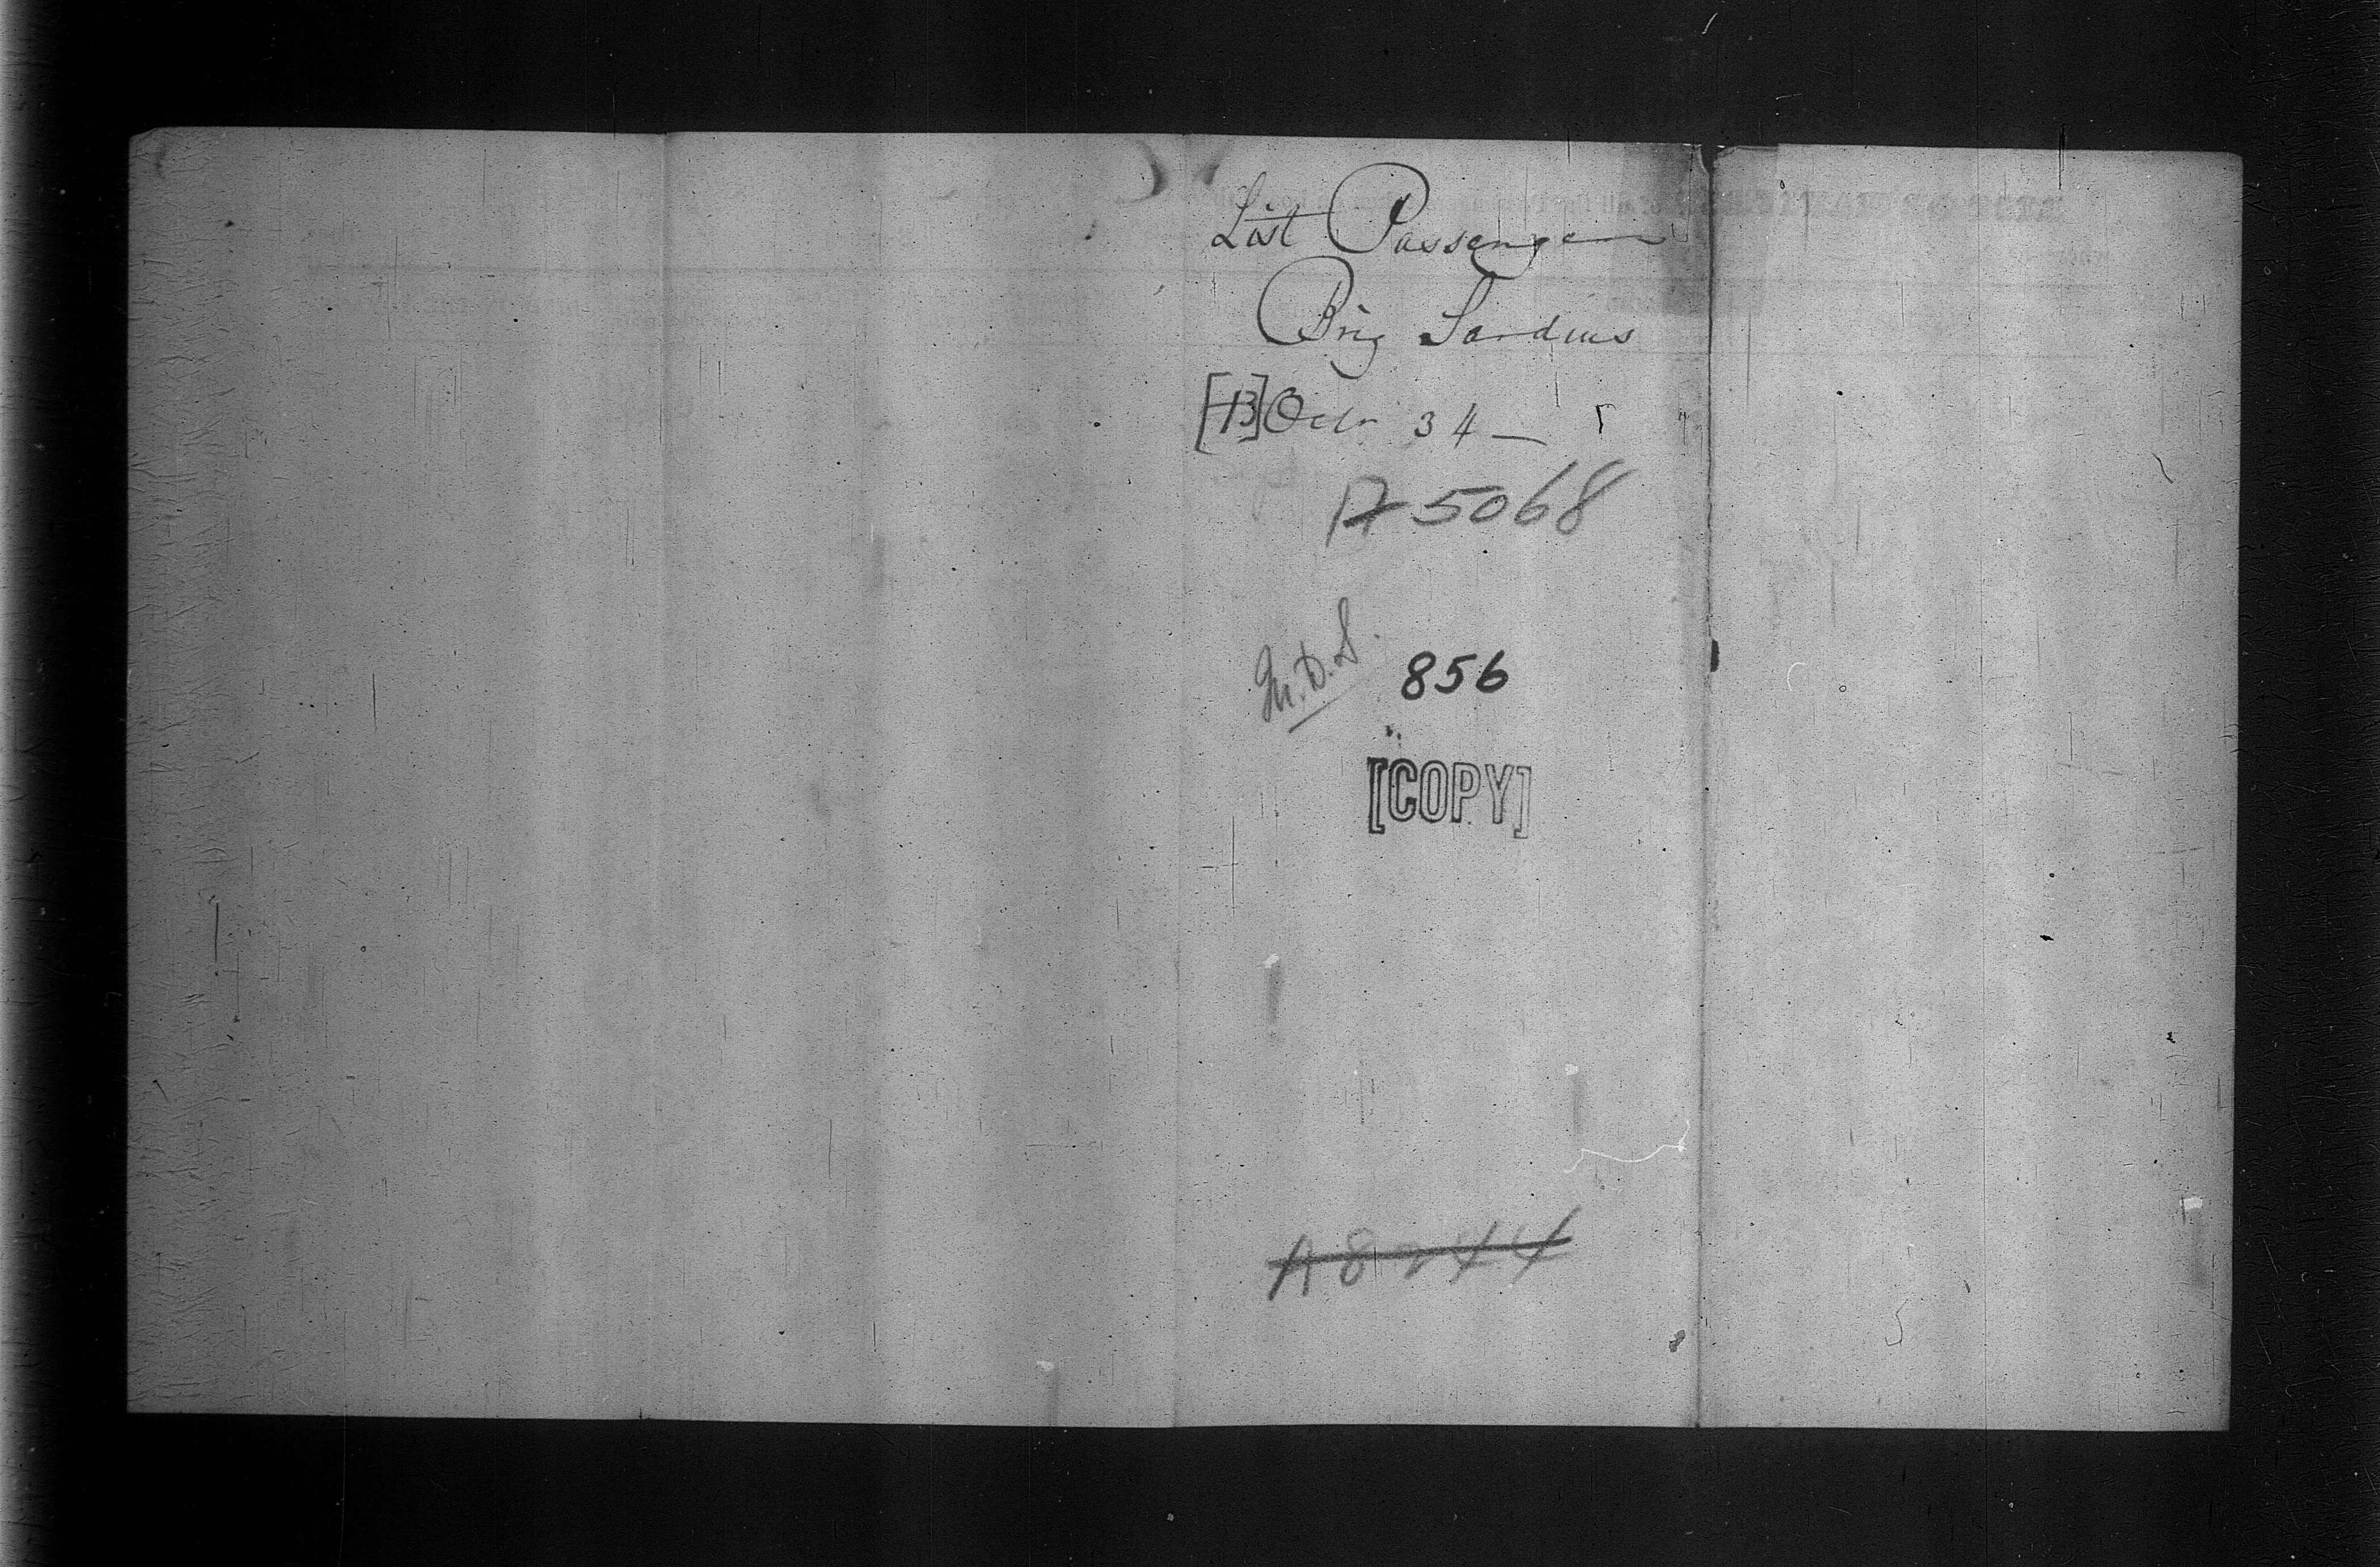 List Passengers
Brig Sardius
[13] Octr 34 —
A 5068
M.D.S. 856
[COPY]
A8244